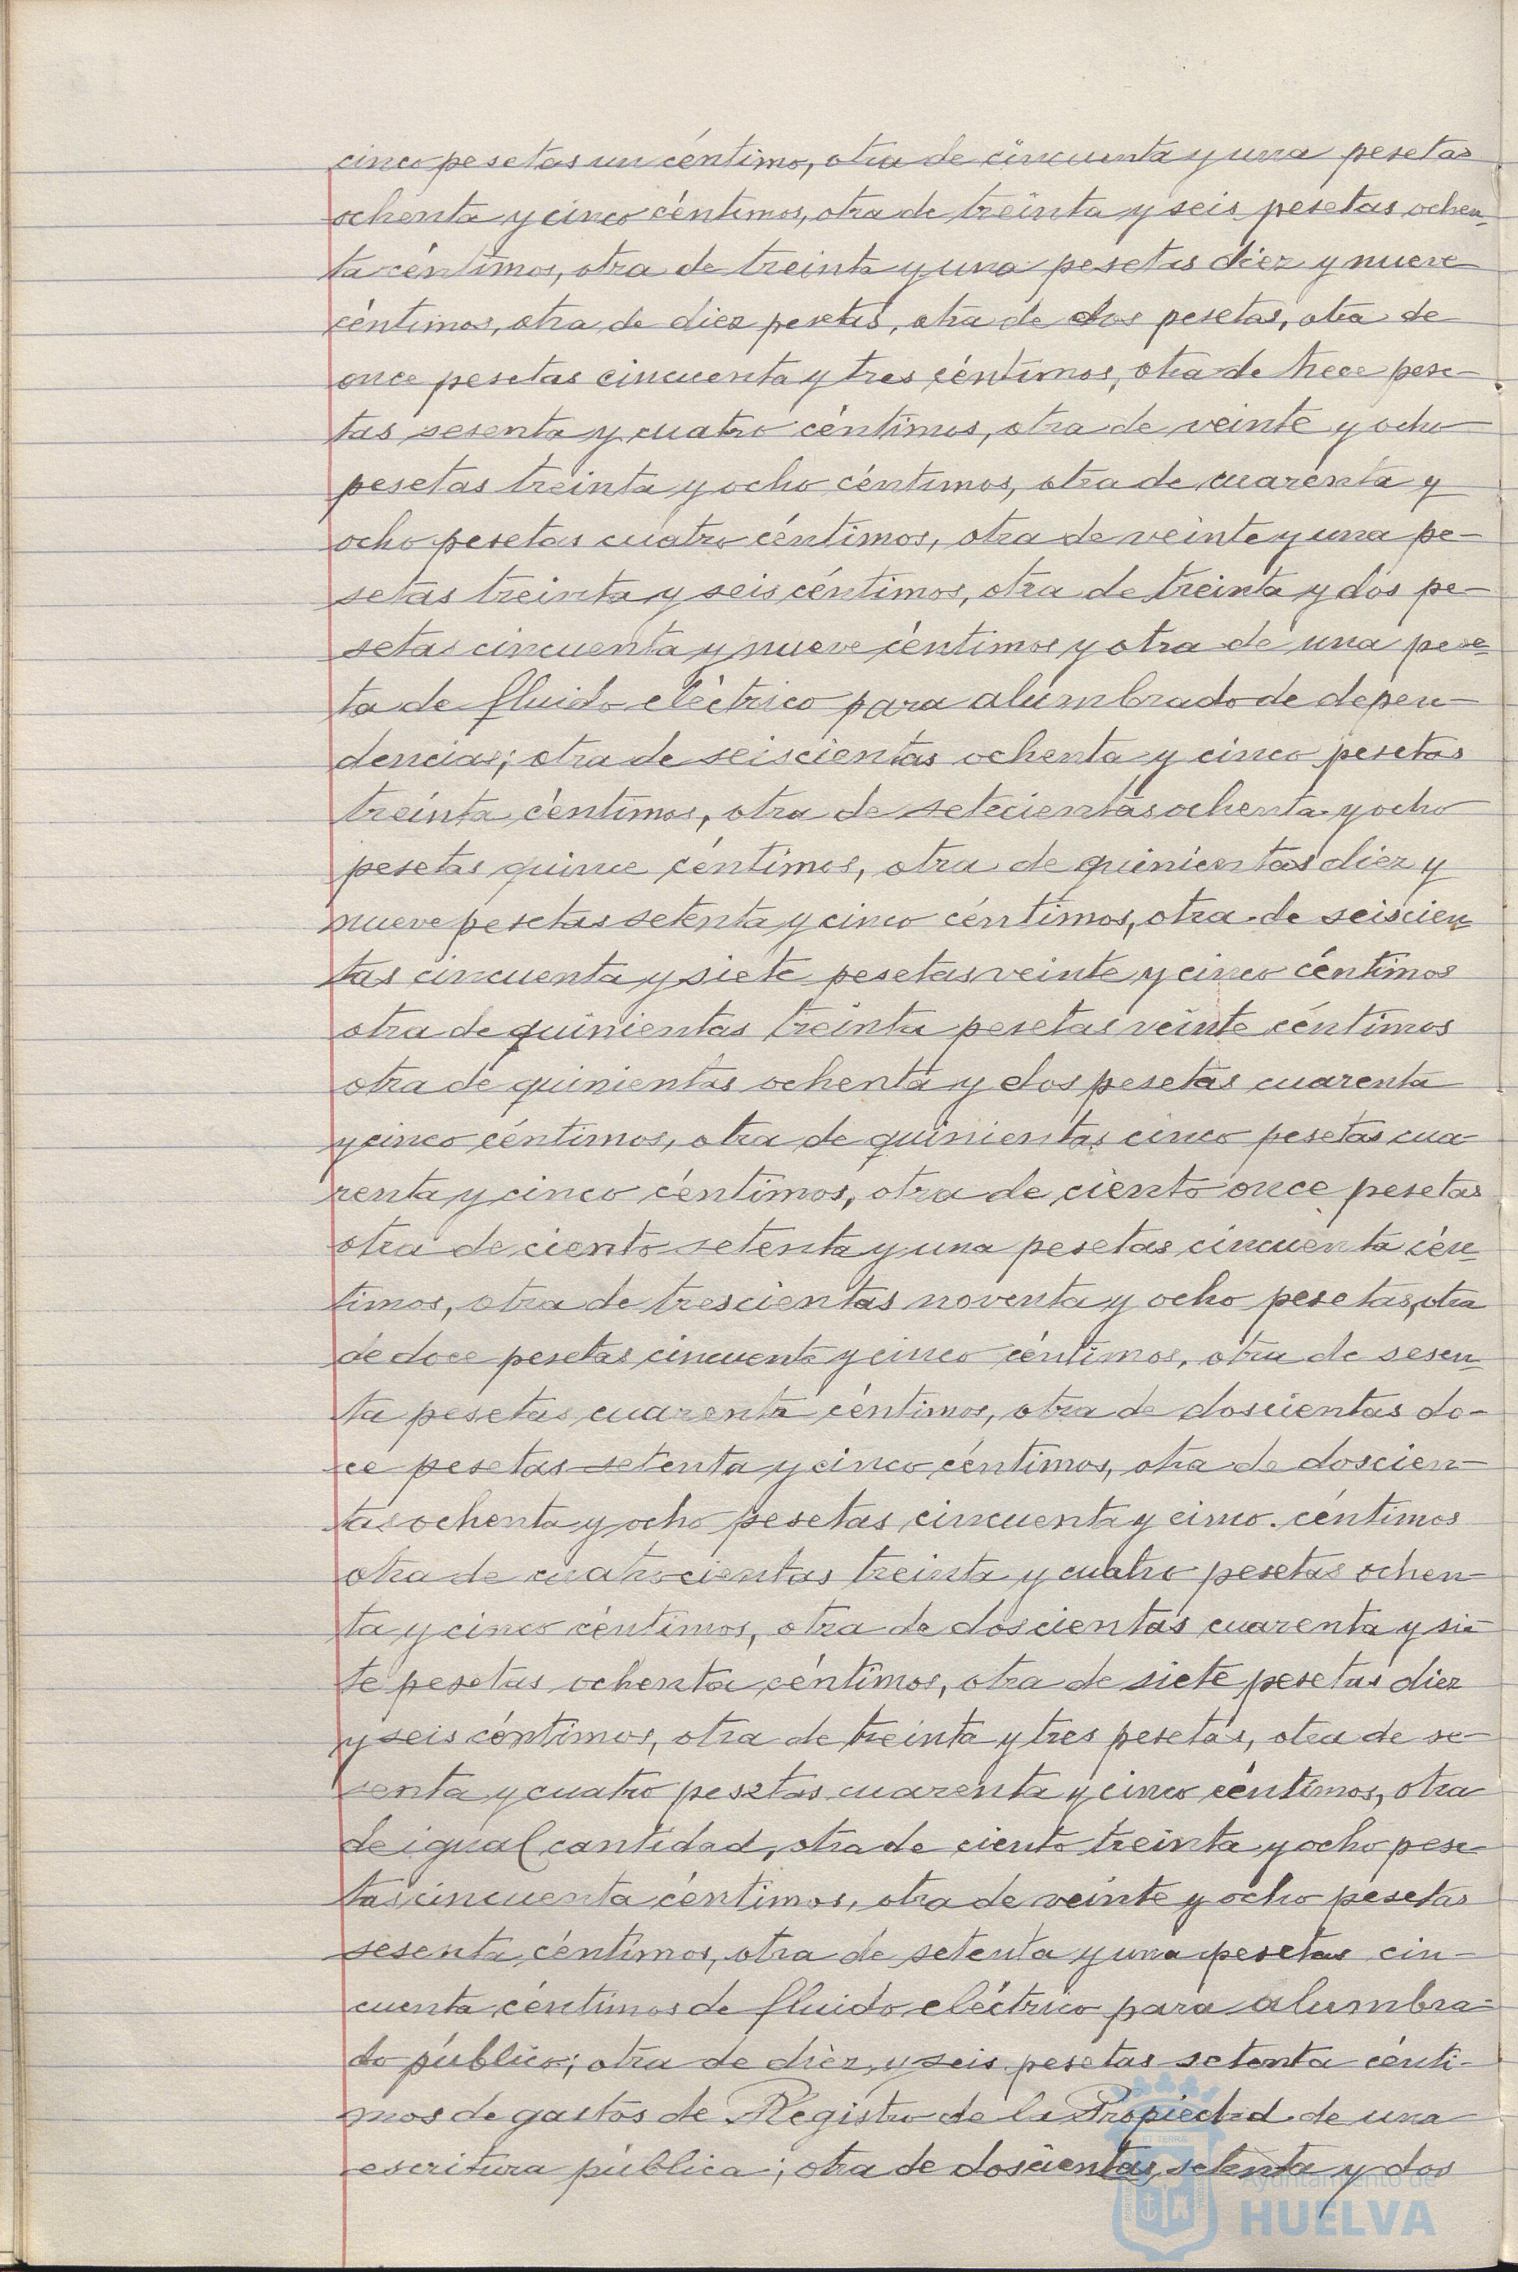 cinco pesetas un céntimo, otra de cincuenta y una pesetas
ochenta y cinco céntimos, otra de treinta y seis pesetas ochen-
ta céntimos, otra de treinta y una pesetas diez y nueve
céntimos, otra de diez pesetas, otra de dos pesetas, otra de
once pesetas cincuenta y tres céntimos, otra de trece pese-
tas sesenta y cuatro céntimos, otra de veinte y ocho
pesetas treinta y ocho céntimos, otra de cuarenta y
ocho pesetas cuatro céntimos, otra de veinte y una pe-
setas treinta y seis céntimos, otra de treinta y dos pe-
setas cincuenta y nueve céntimos y otra de una pese-
ta de fluido eléctrico para alumbrado de depen-
dencias; otra de seiscientas ochenta y cinco pesetas
treinta céntimos, otra de setecientas ochenta y ocho
pesetas quince céntimos, otra de quinientas diez y
nueve pesetas setenta y cinco céntimos, otra de seiscien-
tas cincuenta y siete pesetas veinte y cinco céntimos
otra de quinientas treinta pesetas veinte céntimos
otra de quinientas ochenta y dos pesetas cuarenta
y cinco céntimos, otra de quinientas cinco pesetas cua-
renta y cinco céntimos, otra de ciento once pesetas
otra de ciento setenta y una pesetas cincuenta cén-
timos, otra de trescientas noventa y ocho pesetas, otra
de doce pesetas cincuenta y cinco céntimos, otra de sesen-
ta pesetas cuarenta céntimos, otra de doscientas do-
ce pesetas setenta y cinco céntimos, otra de doscien-
tas ochenta y ocho pesetas cincuenta y cinco. céntimos
otra de cuatrocientas treinta y cuatro pesetas ochen-
ta y cinco céntimos, otra de doscientas cuarenta y sie-
te pesetas ochenta céntimos, otra de siete pesetas diez
y seis céntimos, otra de treinta y tres pesetas, otra de se-
senta y cuatro pesetas cuarenta y cinco céntimos, otra
de igual cantidad, otra de ciento treinta y ocho pese-
tas cincuenta céntimos, otra de veinte y ocho pesetas
sesenta céntimos, otra de setenta y una pesetas cin-
cuenta céntimos de fluido eléctrico para alumbra-
do público; otra de diez y seis pesetas setenta cénti-
mos de gastos de Registro de la Propiedad de una
escritura pública; otra de doscientas setenta y dos
Ayuntamiento de
HUELVA